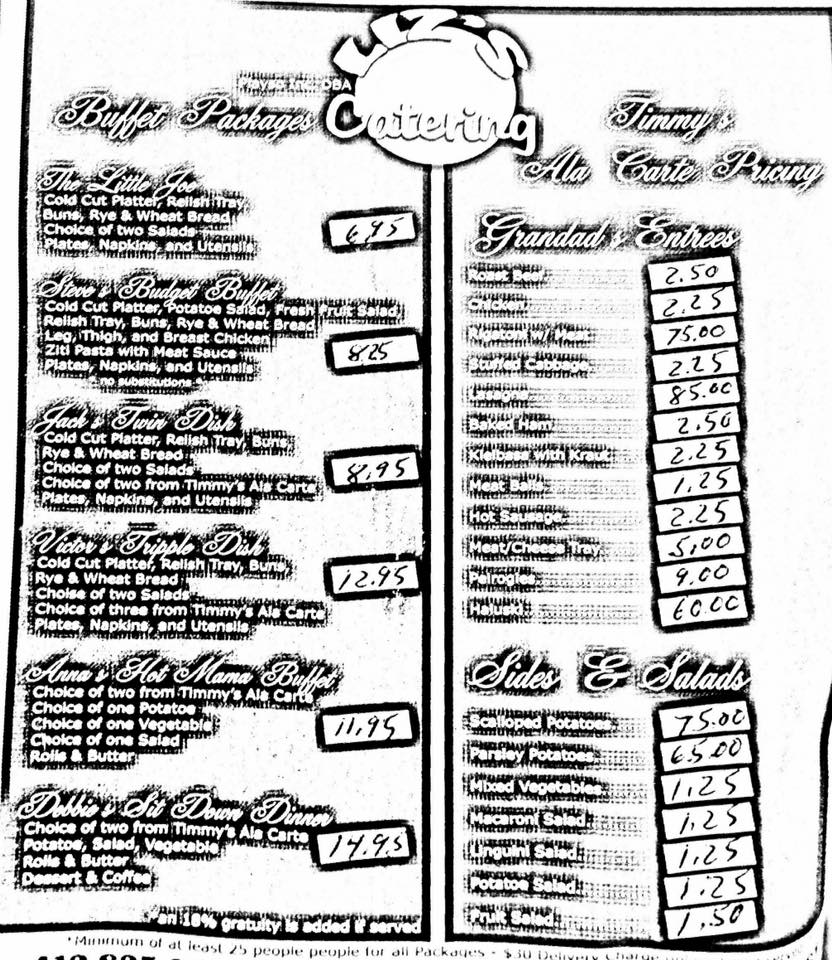 Liz's
DBA
Catering
Buffet Packages
The Little Joe
Cold Cut Platter, Relish Tray
Buns, Rye & Wheat Bread
Choice of two Salads
Plates, Napkins, and Utensils
6.95
Steve's Budget Buffet
Cold Cut Platter, Potatoe Salad, Fresh Fruit Salad
Relish Tray, Buns, Rye & Wheat Bread
Leg, Thigh, and Breast Chicken
Ziti Pasta with Meat Sauce
Plates, Napkins, and Utensils
no substitutions
8.25
Jack's Twin Dish
Cold Cut Platter, Relish Tray, Buns
Rye & Wheat Bread
Choice of two Salads
Choice of two from Timmy's Ala Carte
Plates, Napkins, and Utensils
8.95
Victor's Tripple Dish
Cold Cut Platter, Relish Tray, Buns
Rye & Wheat Bread
Choise of two Salads
Choice of three from Timmy's Ala Carte
Plates, Napkins, and Utensils
12.95
Anna's Hot Mama Buffet
Choice of two from Timmy's Ala Carte
Choice of one Potatoe
Choice of one Vegetable
Choice of one Salad
Rolls & Butter
11.95
Debbie's Sit Down Dinner
Choice of two from Timmy's Ala Carte
Potatoe, Salad, Vegetable
Rolls & Butter
Dessert & Coffee
14.95
*an 18% gratuity is added if served
Timmy's
Ala Carte Pricing
Grandad's Entrees
Roast Beef 2.50
Chicken 2.25
Rigatoni w/ Meat 75.00
Stuffed Cabbage 2.25
Lasagna 85.00
Baked Ham 2.50
Kielbasa with Kraut 2.25
Meat Balls 1.25
Hot Sausage 2.25
Meat/Cheese Tray 5.00
Peirogies 9.00
Haluski 60.00
Sides & Salads
Scalloped Potatoes 75.00
Parsley Potatoes 65.00
Mixed Vegetables 1.25
Macaroni Salad 1.25
Linguini Salad 1.25
Potatoe Salad 1.25
Fruit Salad 1.50
*Minimum of at least 25 people people for all Packages - $30 Delivery Charge